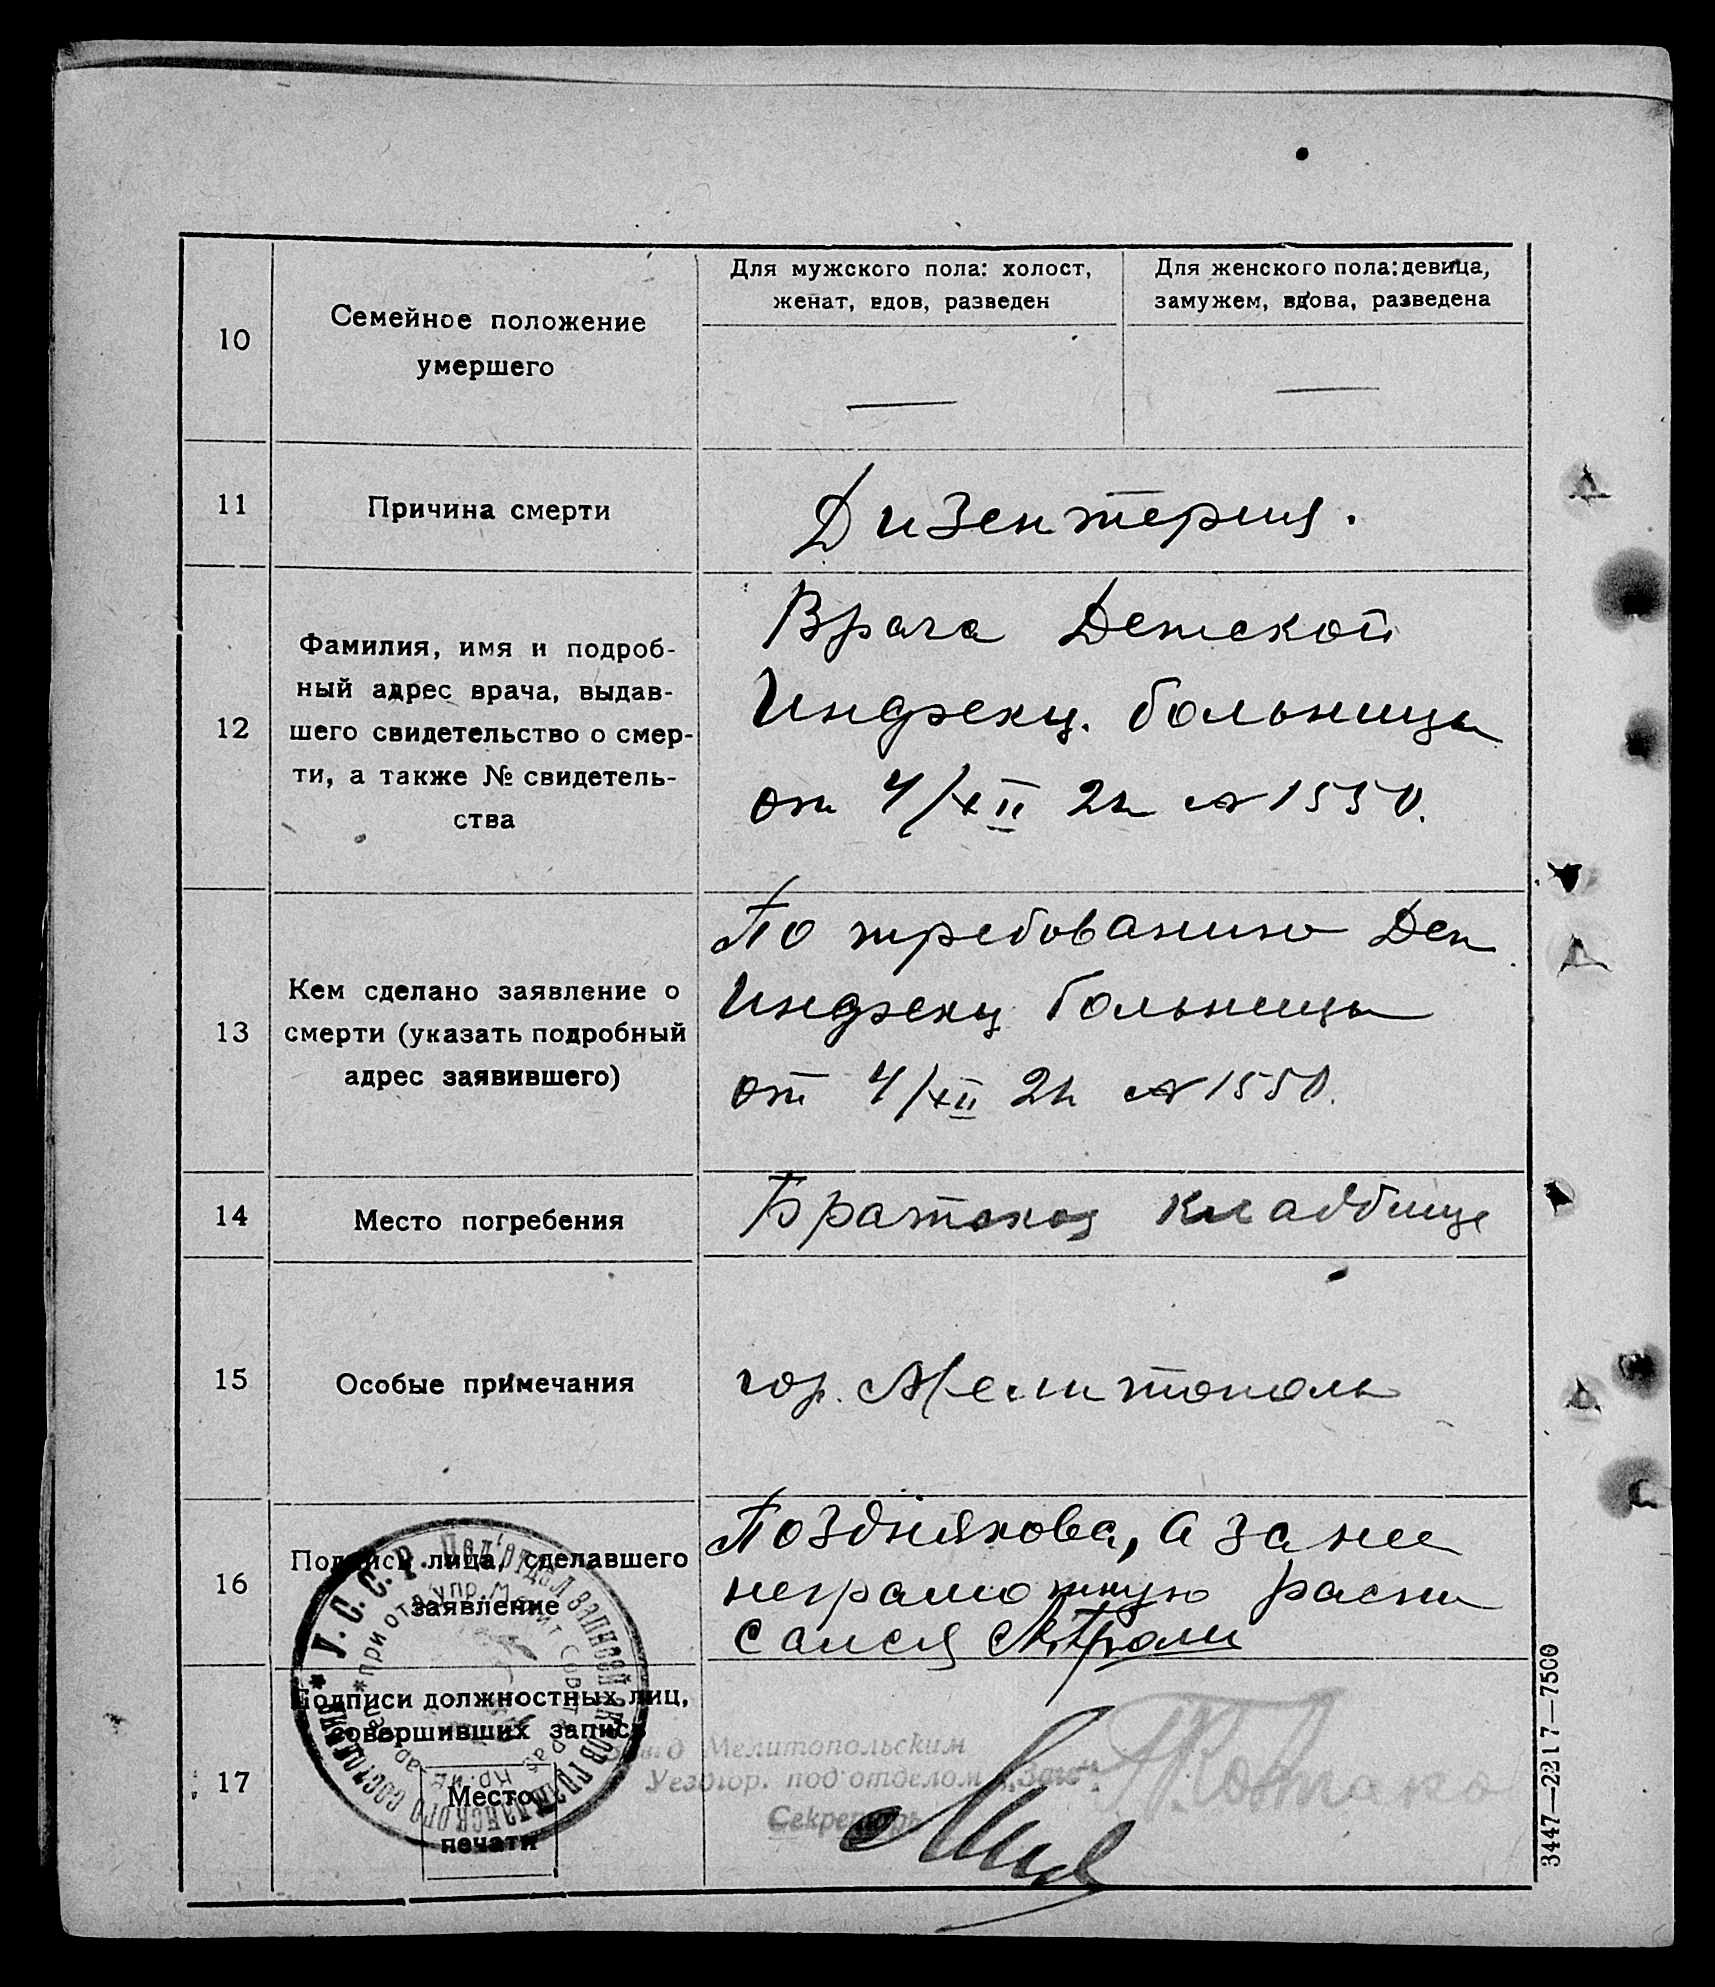 10
Семейное положение
умершего
Для мужского пола: холост,
женат, вдов, разведен
Для женского пола: девица,
замужем, вдова, разведена
11
Причина смерти
Дизентерия.
12
Фамилия, имя и подроб-
ный адрес врача, выдав-
шего свидетельство о смер-
ти, а также № свидетель-
ства
Врача Детской
Инфекц. больницы
от 4/XII 2 № 1550.
13
Кем сделано заявление о
смерти (указать подробный
адрес заявившего)
По требованию Дет
Инфекц больницы
от 4/XII 2 № 1550.
14
Место погребения
Братское кладбище
15
Особые примечания
гор. Мелитополь
16
Подписи лица, сделавшего
заявление
Позднякова, а за нее
неграмотную распи
сался
17
Подписи должностных лиц,
совершивших запись
Место
печати
У.С.С.Р. Под'отдел записей актов гражданского состояния
Мелитопольским
Уездгор. под'отделом „Загс“
Секретарь
3447—2217—7500